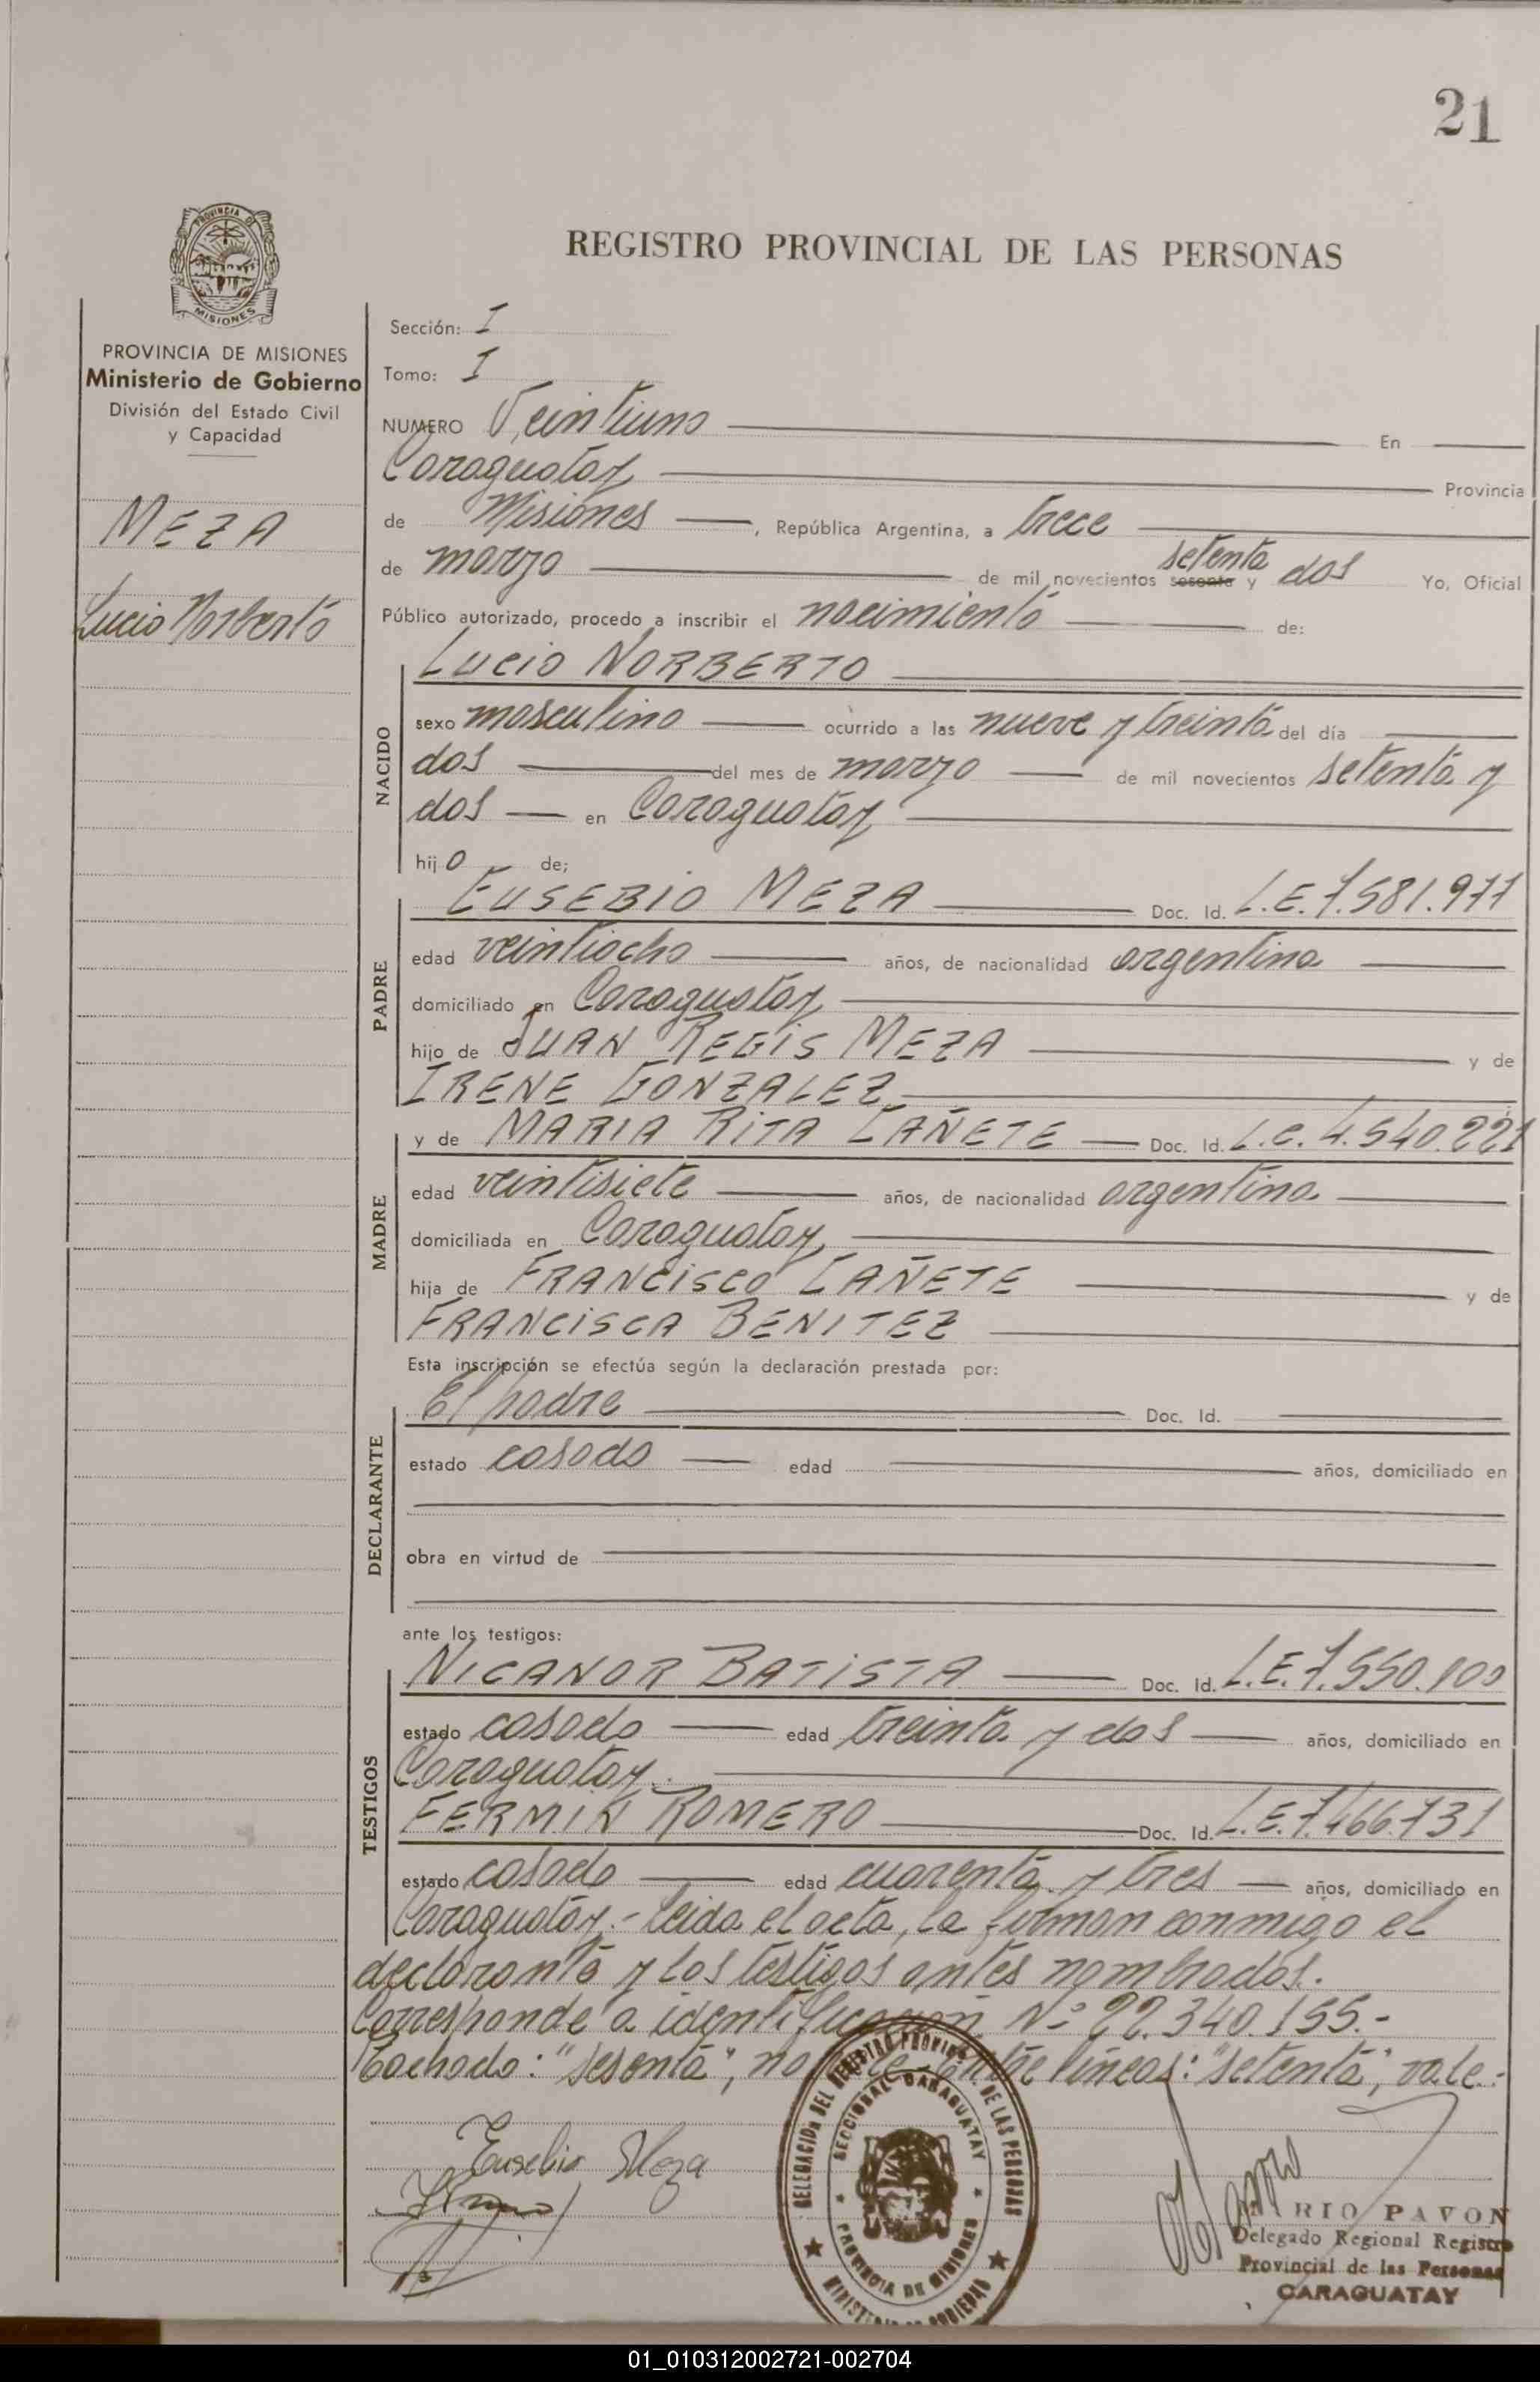 21
PROVINCIA DE
MISIONES
REGISTRO PROVINCIAL DE LAS PERSONAS
PROVINCIA DE MISIONES
Ministerio de Gobierno
División del Estado Civil
y Capacidad
MEZA
Lucio Norberto
Sección: I
Tomo: I
NUMERO Veintiuno En
Caraguatay Provincia
de Misiones, República Argentina, a trece
setenta
de marzo de mil novecientos sesenta y dos Yo, Oficial
Público autorizado, procedo a inscribir el nacimiento de:
NACIDO
LUCIO NORBERTO
sexo masculino ocurrido a las nueve y treinta del día
dos del mes de marzo de mil novecientos setenta y
dos en Caraguatay
hijo de;
PADRE
EUSEBIO MEZA Doc. Id. L.E. 7.581.977
edad veintiocho años, de nacionalidad argentina
domiciliado en Caraguatay
hijo de JUAN REGIS MEZA y de
IRENE GONZALEZ
MADRE
y de MARIA RITA CAÑETE Doc. Id. L.C. 4.540.221
edad veintisiete años, de nacionalidad argentina
domiciliada en Caraguatay
hija de FRANCISCO CAÑETE y de
FRANCISCA BENITEZ
Esta inscripción se efectúa según la declaración prestada por:
DECLARANTE
El padre Doc. Id.
estado casado edad años, domiciliado en
obra en virtud de
ante los testigos:
TESTIGOS
NICANOR BATISTA Doc. Id. L.E. 7.550.100
estado casado edad treinta y dos años, domiciliado en
Caraguatay.
FERMIN ROMERO Doc. Id. L.E. 7.466.731
estado casado edad cuarenta y tres años, domiciliado en
Caraguatay.- Leida el acta, la firman conmigo el
declarante y los testigos antes nombrados.
Corresponde a identificación Nº 22.340.155.-
Tachado: "sesenta", no vale. Entre líneas: "setenta", vale.-
Eusebio Meza
DELEGACION DEL REGISTRO PROVINC. DE LAS PERSONAS
SECCIONAL CARAGUATAY
PROVINCIA DE MISIONES
MINISTERIO DE GOBIERNO
RIO PAVON
Delegado Regional Registro
Provincial de las Personas
CARAGUATAY
01_010312002721-002704